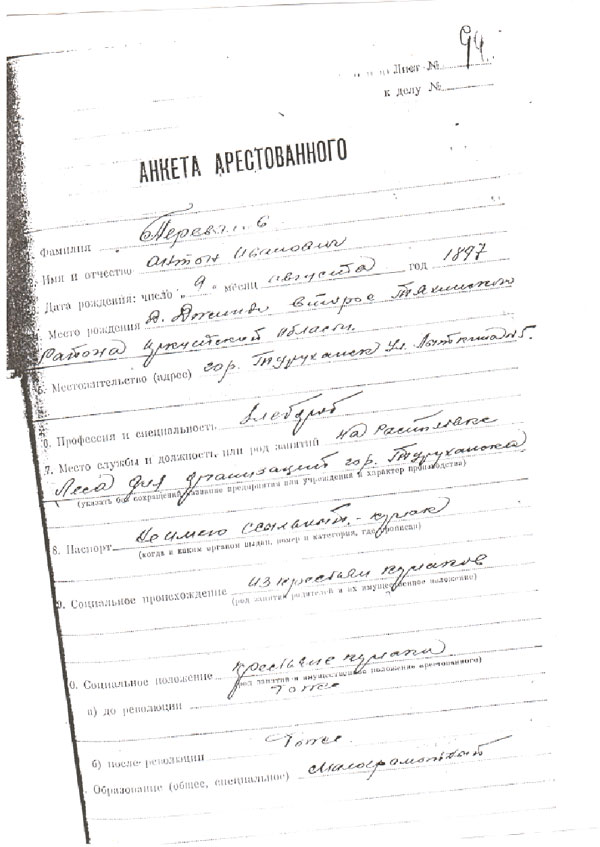 Лист № 94.
к делу №
АНКЕТА АРЕСТОВАННОГО
Фамилия
Имя и отчество Антон Иванович
Дата рождения: число „9" месяц августа год 1897
Место рождения д. второе
Района Иркутской области.
5. Местожительство (адрес) гор. Туруханск ул.
6. Профессия и специальность Хлебороб
7. Место службы и должность или род занятий на Распиловке
Леса для организаций гор. Туруханска
(указать без сокращений название предприятия или учреждения и характер производства)
8. Паспорт Не имею ссыльный - кулак
(когда и каким органом выдан, номер и категория, где прописан)
9. Социальное происхождение из крестьян кулаков
(род занятий родителей и их имущественное положение)
0. Социальное положение крестьяне кулаки
(род занятий и имущественное положение арестованного)
а) до революции тоже
б) после революции тоже
Образование (общее, специальное) малограмотный